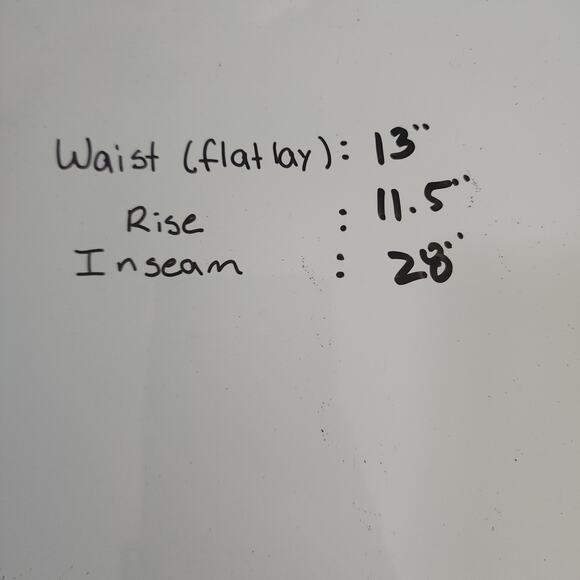 Waist (flatlay): 13"
Rise : 11.5"
Inseam : 28"